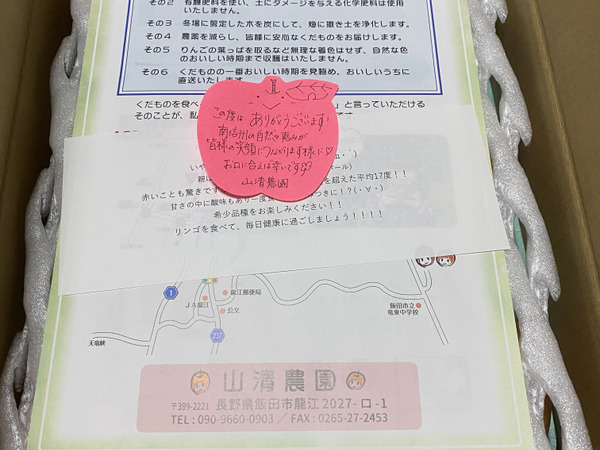 その2 有機肥料を使い、土にダメージを与える化学肥料は使用
いたしません。
その3 冬場に剪定した木を炭にして、畑に撒き土を浄化します。
その4 農薬を減らし、皆様に安心なくだものをお届けします。
その5 りんごの葉っぱを取るなど無理な着色はせず、自然な色
のおいしい時期まで収穫はいたしません。
その6 くだものの一番おいしい時期を見極め、おいしいうちに
直送いたします。
くだものを食べ
」と言っていただける
そのことが、私
この度は ありがとうございます!
南信州の自然の恵みが
皆様の笑顔につながります様に♡
お口に合えば幸いです
山清農園
いや
親に
を超えた平均17度!!
赤いことも驚きです
甘さの中に酸味もあり一度食
つきに!?(・∀・)
希少品種をお楽しみください!!
リンゴを食べて、毎日健康に過ごしましょう!!!!
1
龍江郵便局
JA龍江
公文
237
天竜峡
飯田市立
竜東中学校
山清農園
〒399-2221 長野県飯田市龍江2027-ロ-1
TEL:090-9660-0903 / FAX:0265-27-2453